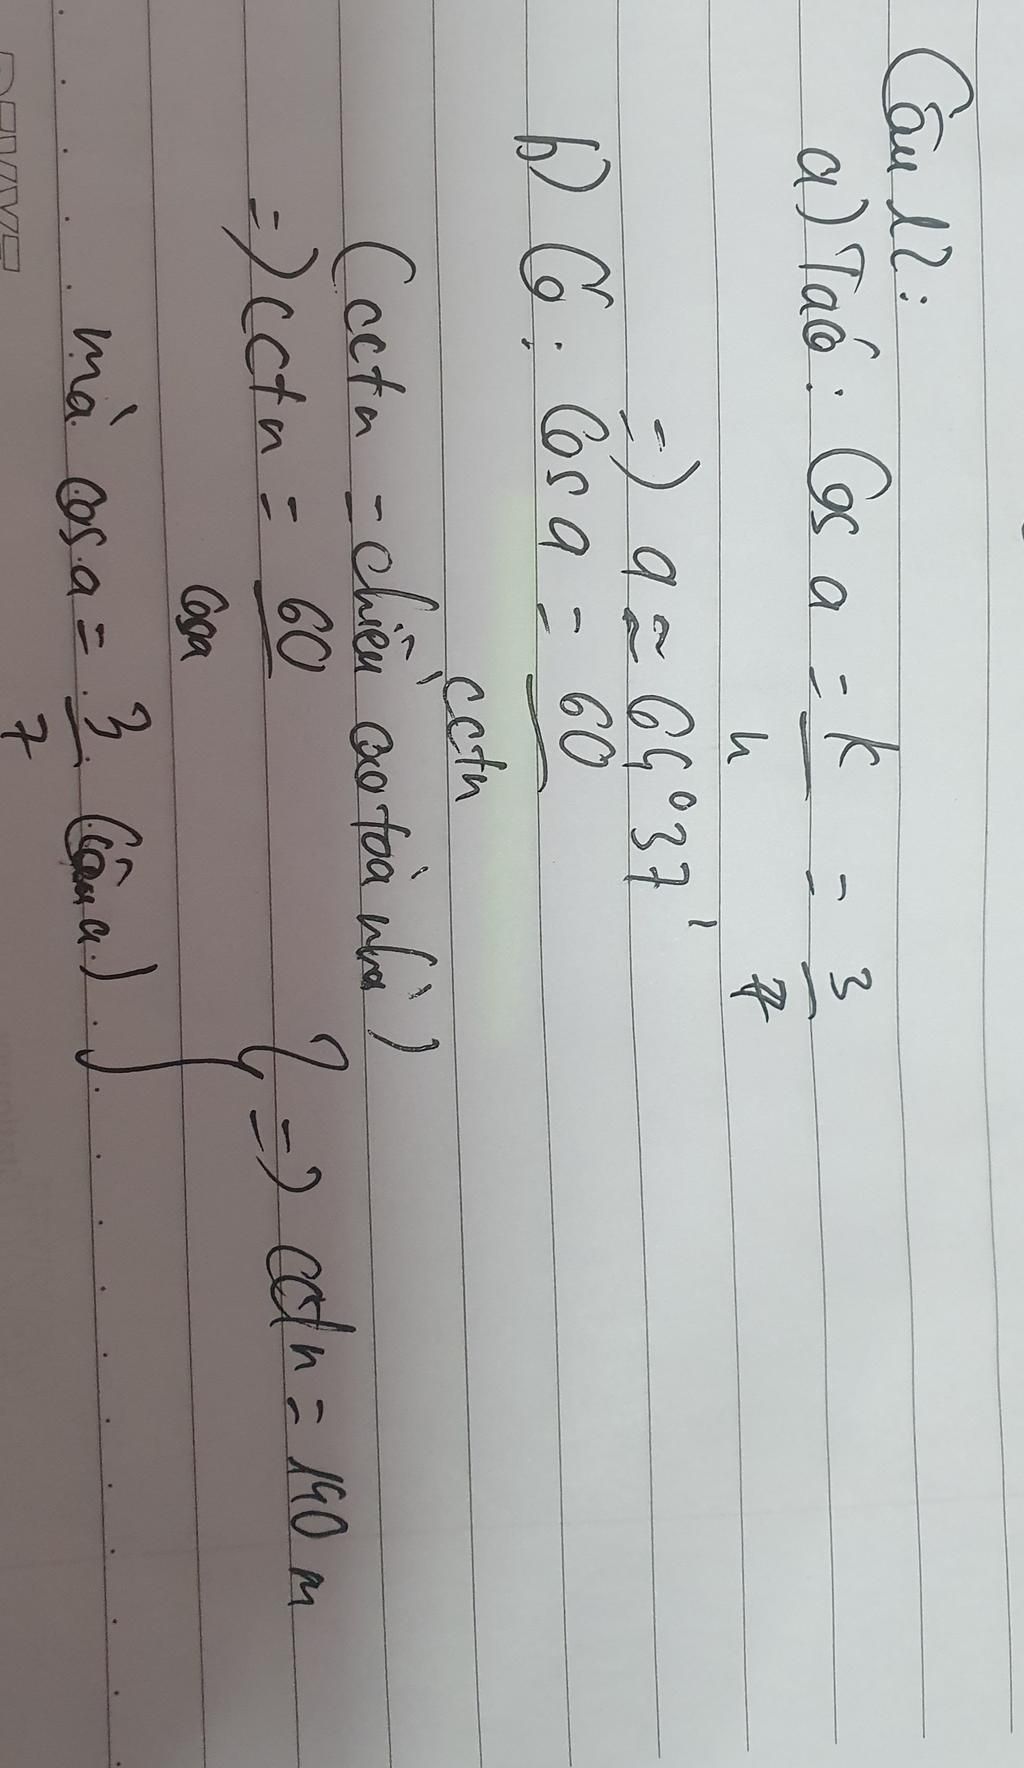 Câu 12:
a) Ta có: Cos a = k/h = 3/7
=) a ≈ 64°37'
b) Có: Cos a = 60/cctn
(cctn - chiều cao toà nhà)
=) cctn = 60/Cosa
mà Cos a = 3/7 (câu a) } => cctn = 140 m